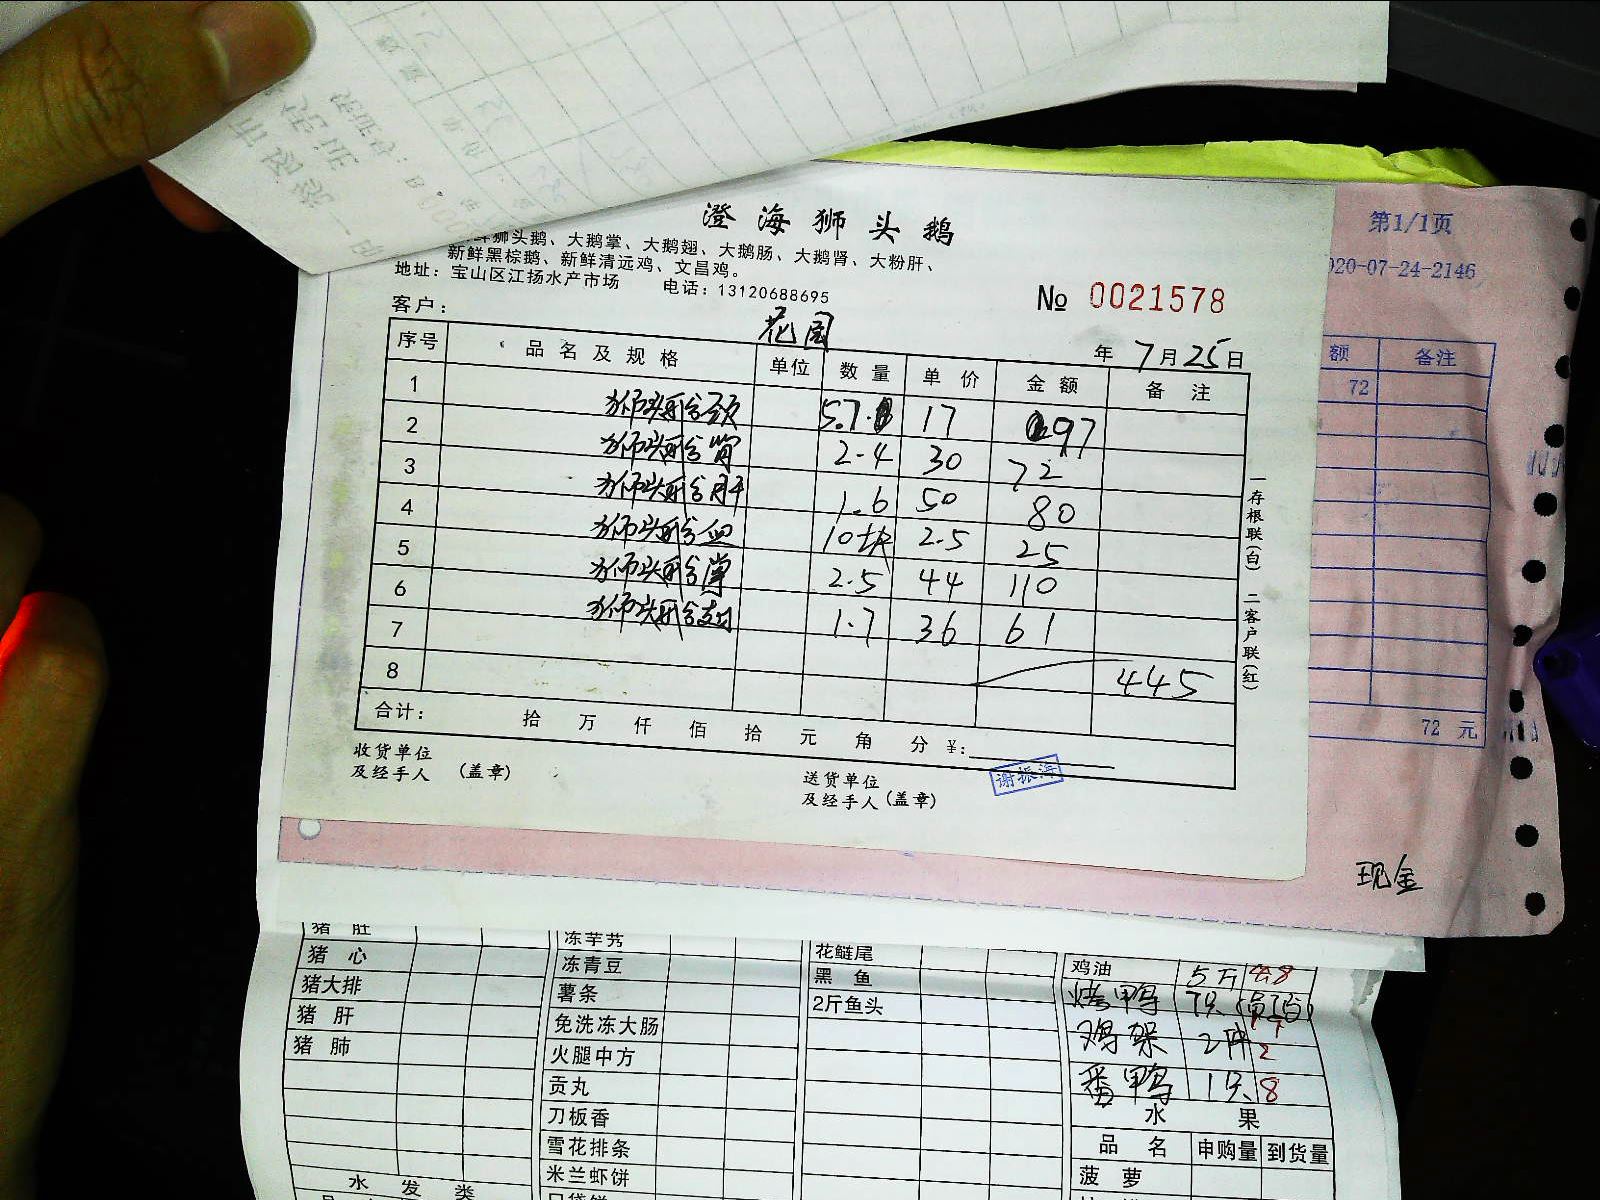 澄海狮头鹅
狮头鹅、大鹅掌、大鹅翅、大鹅肠、大鹅肾、大粉肝、
新鲜黑棕鹅、新鲜清远鸡、文昌鸡。
地址：宝山区江扬水产市场 电话：13120688695
№ 0021578
客户： 花园
年 7月25日
序号 品名及规格 单位 数量 单价 金额 备注
1 狮头鹅颈 5.7 17 97
2 狮头鹅 2.4 30 72
3 狮头鹅肝 1.6 50 80
4 狮头鹅血 10块 2.5 25
5 狮头鹅掌 2.5 44 110
6 狮头鹅翅 1.7 36 61
7
8 445
合计： 拾 万 仟 佰 拾 元 角 分 ￥:
收货单位
及经手人 （盖章）
送货单位
及经手人（盖章）
谢振海
一存根联(白) 二客户联(红)
第1/1页
020-07-24-2146
额 备注
72
72 元
现金
猪肚
猪心
猪大排
猪肝
猪肺
水发类
冻芋艿
冻青豆
薯条
免洗冻大肠
火腿中方
贡丸
刀板香
雪花排条
米兰虾饼
花鲢尾
黑鱼
2斤鱼头
鸡油 5斤 4.8
烤鸭 7只
鸡架 2 2
番鸭 1只 8
水果
品名 申购量 到货量
菠萝